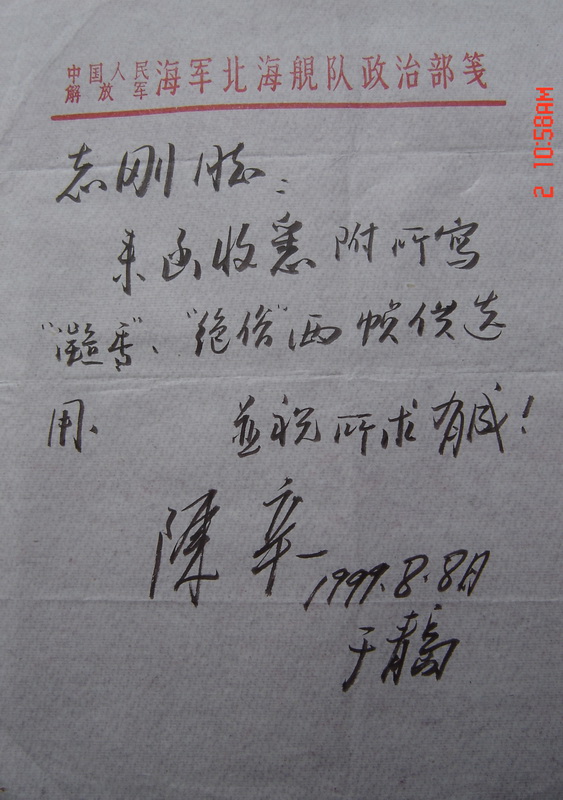 中国人民解放军海军北海舰队政治部笺
志刚同志:
来函收悉 附所写
"溢香"、"绝俗"两帧供选
用. 並祝 所求有成!
陳 辛
1999.8.8日
于青島
2 10:58AM